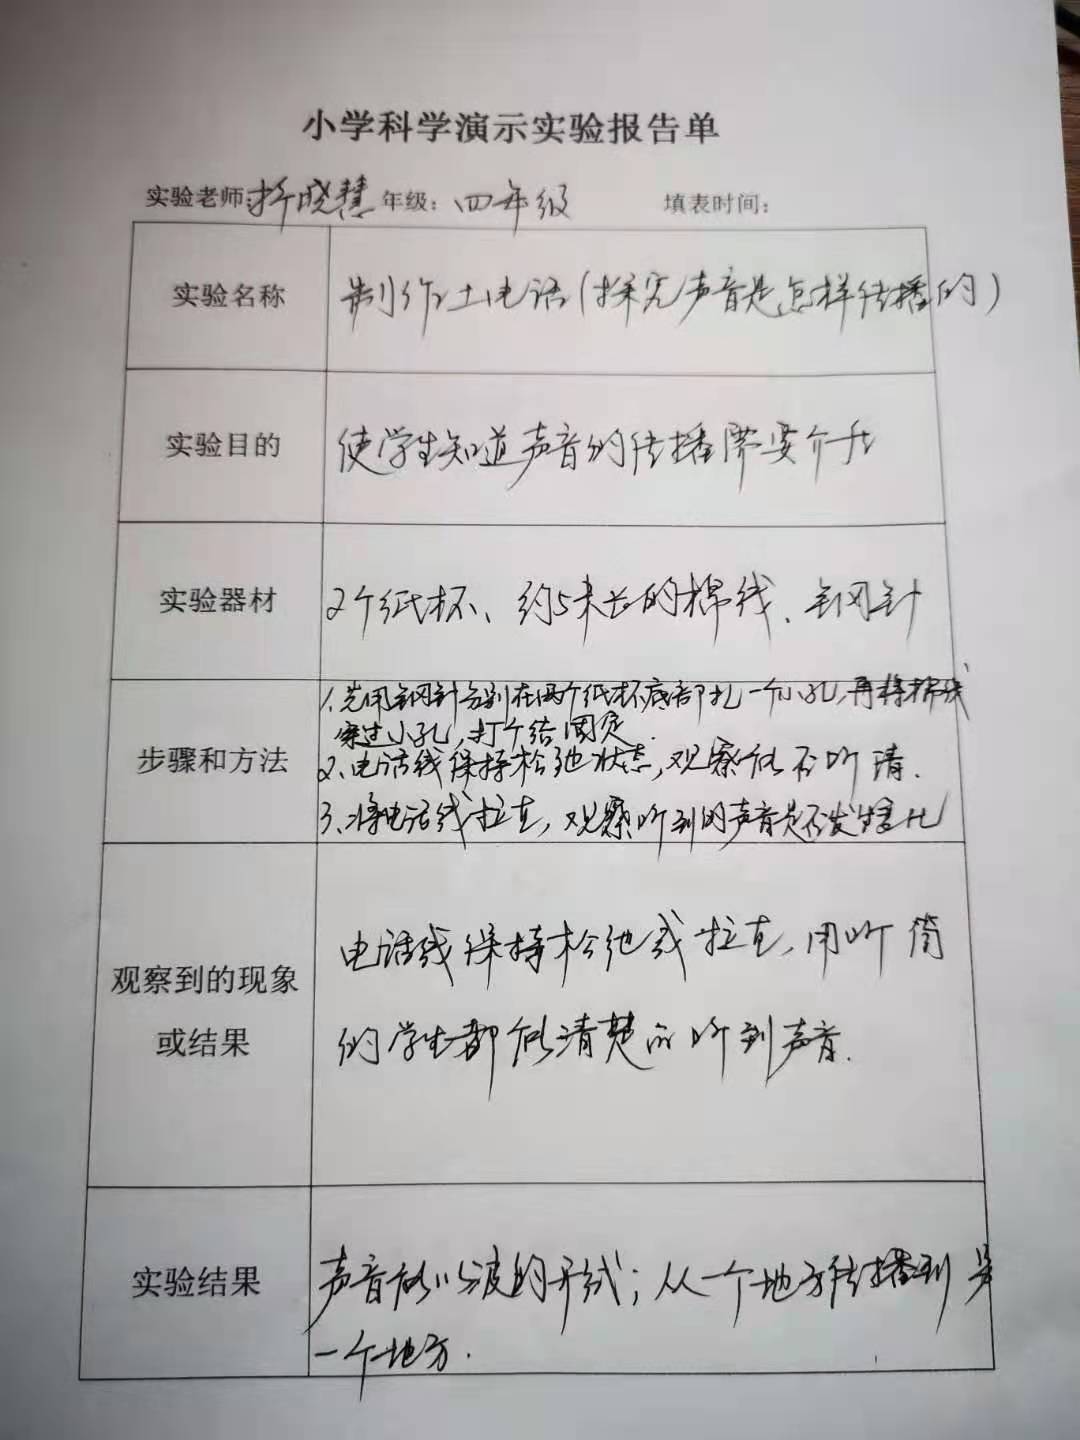 小学科学演示实验报告单
实验老师:乔晓慧 年级:四年级 填表时间:
实验名称 制作土电话(探究声音是怎样传播的)
实验目的 使学生知道声音的传播需要介
实验器材 2个纸杯、约5米长的棉线、钢针
1.先用钢针分别在两个纸杯底部扎一个小孔,再将棉线
穿过小孔,打个结固定.
步骤和方法 2、电话线保持松弛状态,观察能否听清.
3、将电话线拉直,观察听到的声音是否发生变化
电话线保持松弛或拉直,用听筒
观察到的现象
或结果 的学生都能清楚的听到声音.
实验结果 声音能以波的形式;从一个地方传播到另
一个地方.